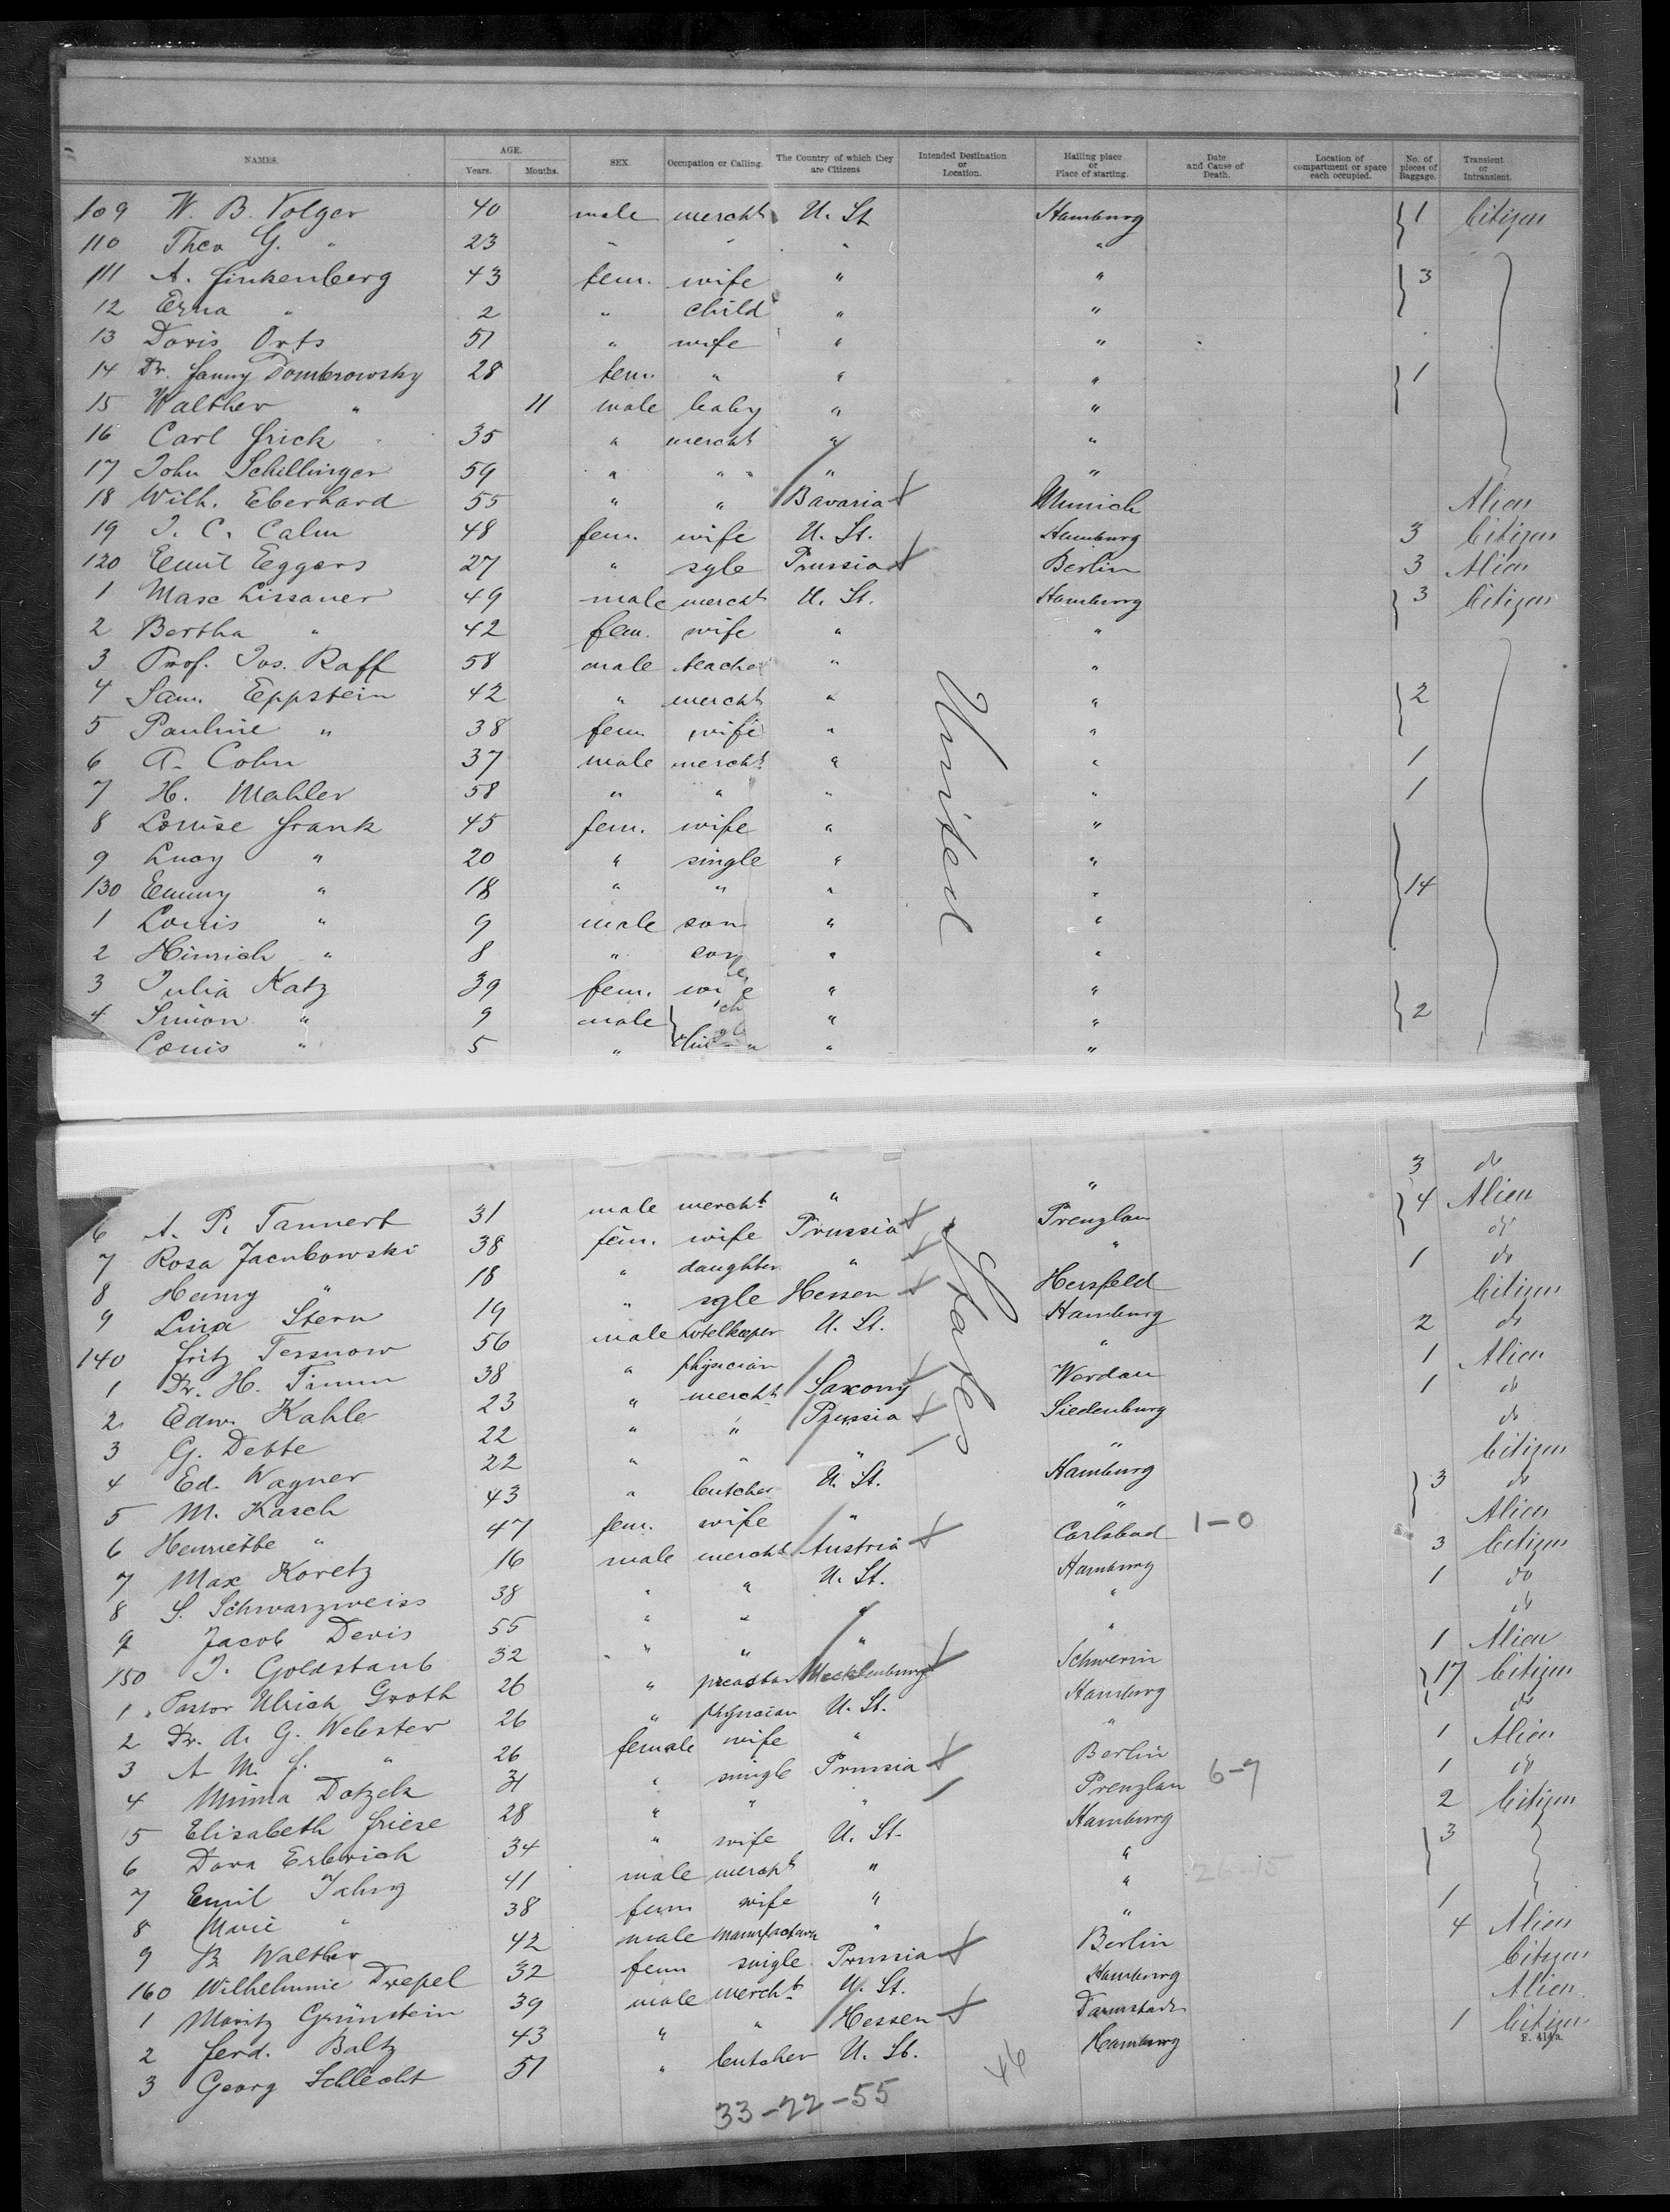 NAMES. AGE. Years. Months. SEX. Occupation or Calling. The Country of which they are Citizens Intended Destination or Location. Hailing place or Place of starting. Date and Cause of Death. Location of compartment or space each occupied. No. of pieces of Baggage. Transient or Intransient.
109 W. B. Volger 40 male mercht U. St Hamburg 1 Citizen
110 Theo G. " 23 " " " "
111 A. Finkenberg 43 fem. wife " " 3
12 Erna " 2 " child " "
13 Doris Orts 51 " wife " "
14 Dr. Fanny Dombrowsky 28 fem. " " " 1
15 Walther " 11 male baby " "
16 Carl Frick 35 " mercht " "
17 John Schillinger 59 " " " "
18 Wilh. Eberhard 55 " " Bavaria Munich Alien
19 J. C. Calm 48 fem. wife U. St. Hamburg 3 Citizen
120 Emil Eggers 27 " sgle Prussia Berlin 3 Alien
1 Max Lissauer 49 male mercht U. St. Hamburg 3 Citizen
2 Bertha " 42 fem. wife " "
3 Prof. Jos. Raff 58 male teacher " "
4 Sam. Eppstein 42 " mercht " " 2
5 Pauline " 38 fem wife " "
6 A. Cohn 37 male mercht " " 1
7 H. Mahler 58 " " " " 1
8 Louise Frank 45 fem. wife " "
9 Lucy " 20 " single " "
130 Emmy " 18 " " " " 14
1 Louis " 9 male son " "
2 Hinrich " 8 " son " "
3 Julia Katz 39 fem. wife " "
4 Simon " 9 male " " 2
Louis " 5 " " "
United States
6 A. P. Tannert 31 male mercht " " 3 do
7 Rosa Jacubowski 38 fem. wife Prussia Prenzlau 4 Alien
8 Henny " 18 " daughter " " do
9 Lina Stern 19 " sgle Hessen Hersfeld 1 do
140 Fritz Tessnow 56 male hotelkeeper U. St. Hamburg Citizen
1 Dr. H. Timm 38 " physician " " 2 do
2 Edw. Kahle 23 " mercht Saxony Werdau 1 Alien
3 G. Debbe 22 " " Prussia Siedenburg 1 do
4 Ed. Wagner 22 " " " " do
5 M. Kasch 43 " butcher U. St. Hamburg Citizen
6 Henriette " 47 fem. wife " " 3 do
7 Max Koretz 16 male mercht Austria Carlsbad 1-0 Alien
8 S. Schwarzweiss 38 " " U. St. Hamburg 3 Citizen
9 Jacob Devis 55 " " " " 1 do
150 J. Goldstaub 32 " " " " do
1 Pastor Ulrich Groth 26 " preacher Mecklenburg Schwerin 1 Alien
2 Dr. A. G. Webster 26 " physician U. St. Hamburg 17 Citizen
3 A. M. F. " 26 female wife " " do
4 Minna Dotzek 31 " single Prussia Berlin 1 Alien
5 Elisabeth Friese 28 " " " Prenzlau 6-9 1 do
6 Dora Erbrich 34 " wife U. St. Hamburg 2 Citizen
7 Emil Jahng 41 male mercht " " 26-15 3
8 Marie " 38 fem wife " "
9 B. Walther 42 male manufacturer " " 1
160 Wilhelmine Drepel 32 fem single Prussia Berlin 4 Alien
1 Moritz Grünstein 39 male mercht U. St. Hamburg Citizen
2 Ferd. Baltz 43 " " Hessen Darmstadt Alien
3 Georg Schlecht 51 " butcher U. St. Hamburg 1 Citizen
46
33-22-55